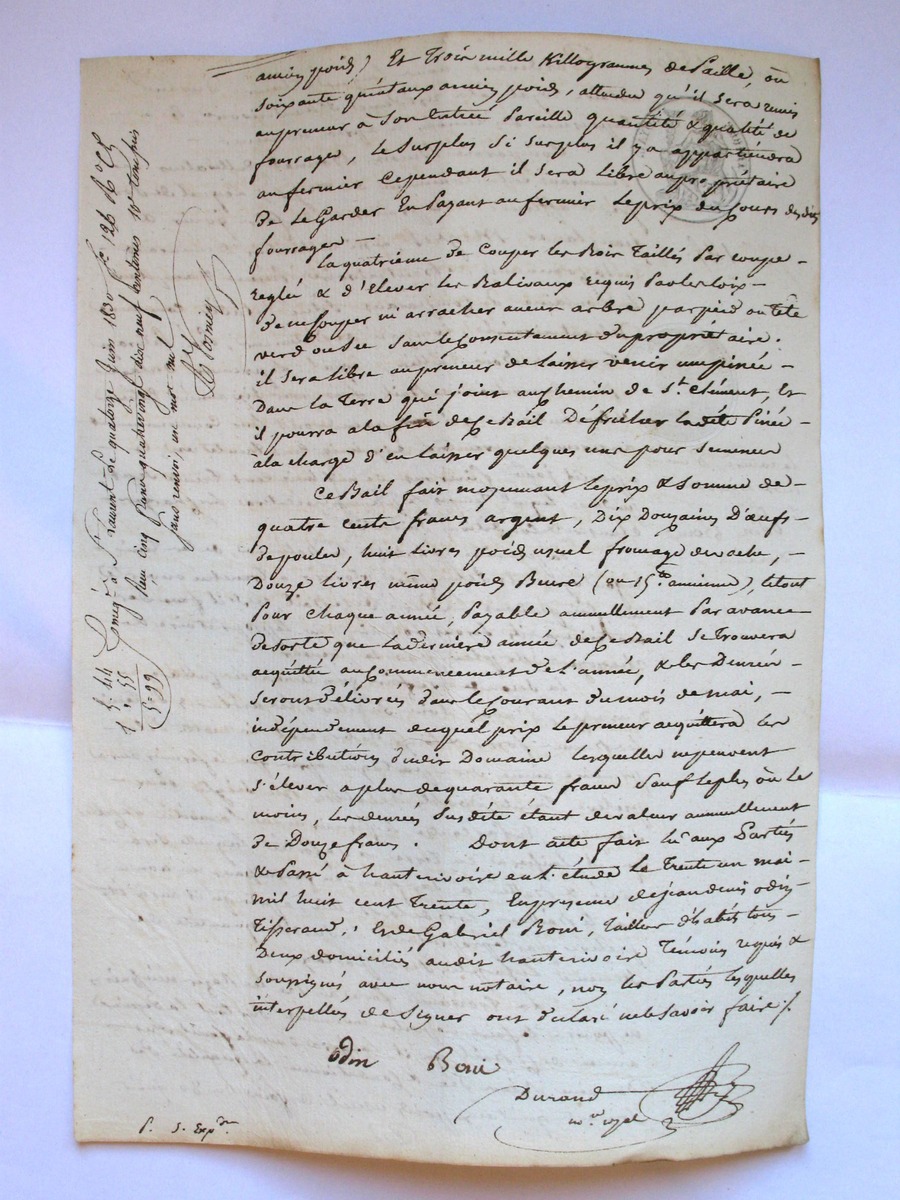 ancien poids) Et Trois mille Killogrammes de Paille, ou
soixante quintaux ancien poids, attendu qu'il sera remis
au preneur à son Entrée Pareille quantité & qualité de
fourrage, Le Surplus Si Surplus il y a appartiendra
au fermier Cependant il sera Libre au propriétaire
De Le Garder En Payant au fermier Le prix du Cours desdits
fourrages —
La quatrieme De Couper les Bois Taillés Par coupe —
Reglé & d'Elever les Balivaux requis Par les loix —
De ne Couper ni arracher aucun arbre par pied ou tête
verd ou Sec Sans le Consentement du propriétaire.
il sera Libre au preneur de Laisser venir une pinée —
Dans la Terre qui joint au chemin de St. Clément, Et
il pourra a la fin de Ce Bail Défricher ladite Pinée —
à la charge d'en laisser quelques uns pour Semence
Ce Bail fait moyennant Le prix & Somme de —
quatre cents francs argent, Dix Douzaines D'œufs —
De poules, huit Livres poids usuel fromage de vache, —
Douze livres même poids Beure (ou 15 ancienne), le tout
Pour chaque année, Payable annuellement Par avance
De sorte que La dernière année de Ce Bail Se Trouvera
acquittée au Commencement de L'année, & les Denrées —
Seront Délivrées dans le Courant du mois de mai, —
indépendement duquel prix Le preneur acquittera les
Contributions dudit Domaine lesquelles ne peuvent
S'élever a plus de quarante francs Sauf Le plus ou Le
moins, les denrées Susdite étant de valeur annuellement
De Douze francs. Dont acte fait lû aux Parties
& Passé à hauterivoire en L'étude Le Trente un mai
mil huit cent Trente, En présence de jean denis odin
Tisserand, & de Gabriel Boni, Tailleur d'habits tous —
Deux domiciliés audit hauterivoire Témoins requis &
Soussignés avec nous notaire, non les Parties lesquelles
interpellés de Signer ont déclaré ne le Savoir faire /.
odin Boni
Durand
P. S. Exp
Enreg. à St Laurent le quatorze Juin 1830 fo 126
reçu cinq francs quarante dix neuf centimes 10e compris
sans renvoi, ni mot nul
5. 44
. 55
5. 99